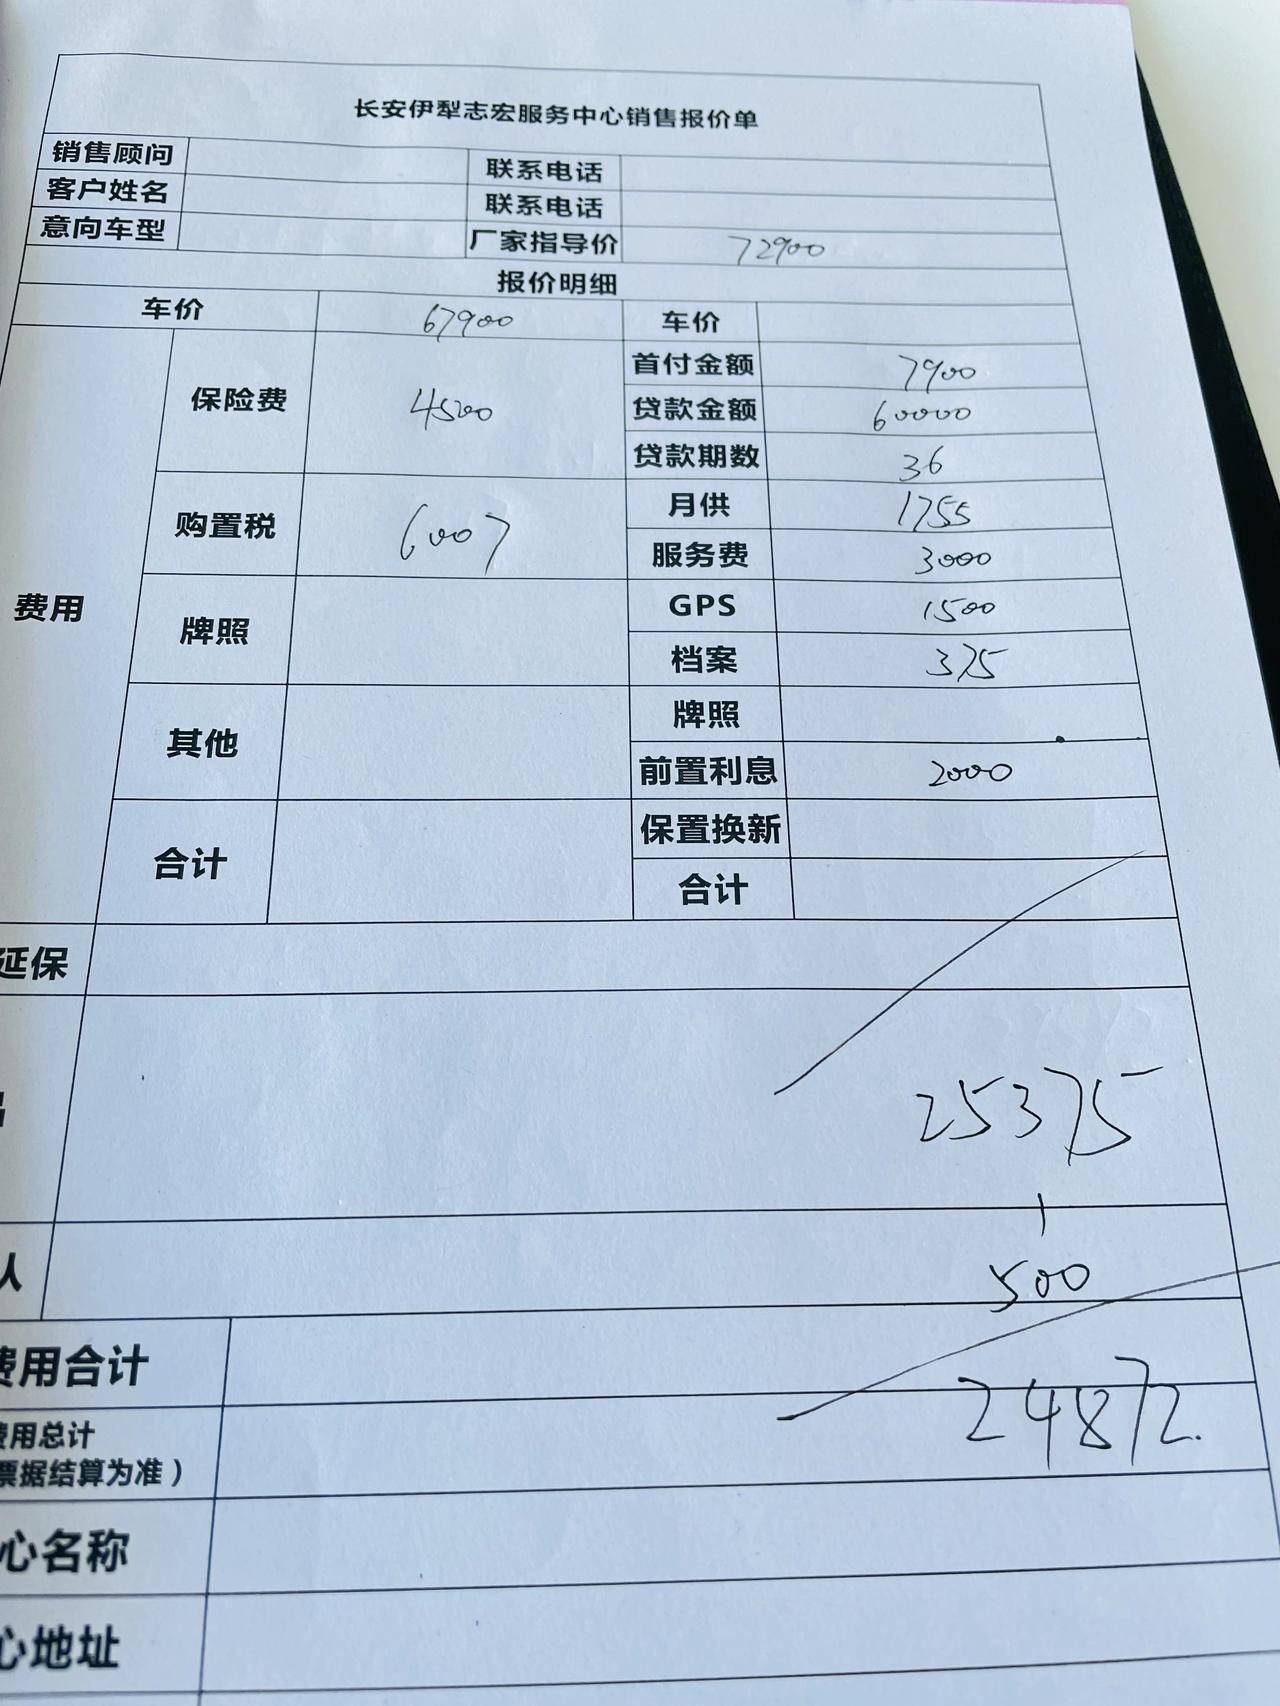 长安伊犁志宏服务中心销售报价单
销售顾问 联系电话
客户姓名 联系电话
意向车型 厂家指导价 72900
报价明细
车价 67900 车价
费用
保险费 4500
首付金额 7900
贷款金额 60000
贷款期数 36
购置税 6007
月供 1755
服务费 3000
牌照
GPS 1500
档案 375
其他
牌照
前置利息 2000
合计
保置换新
合计
延保
25375
人
500
费用合计
24872.
费用总计
票据结算为准）
心名称
心地址